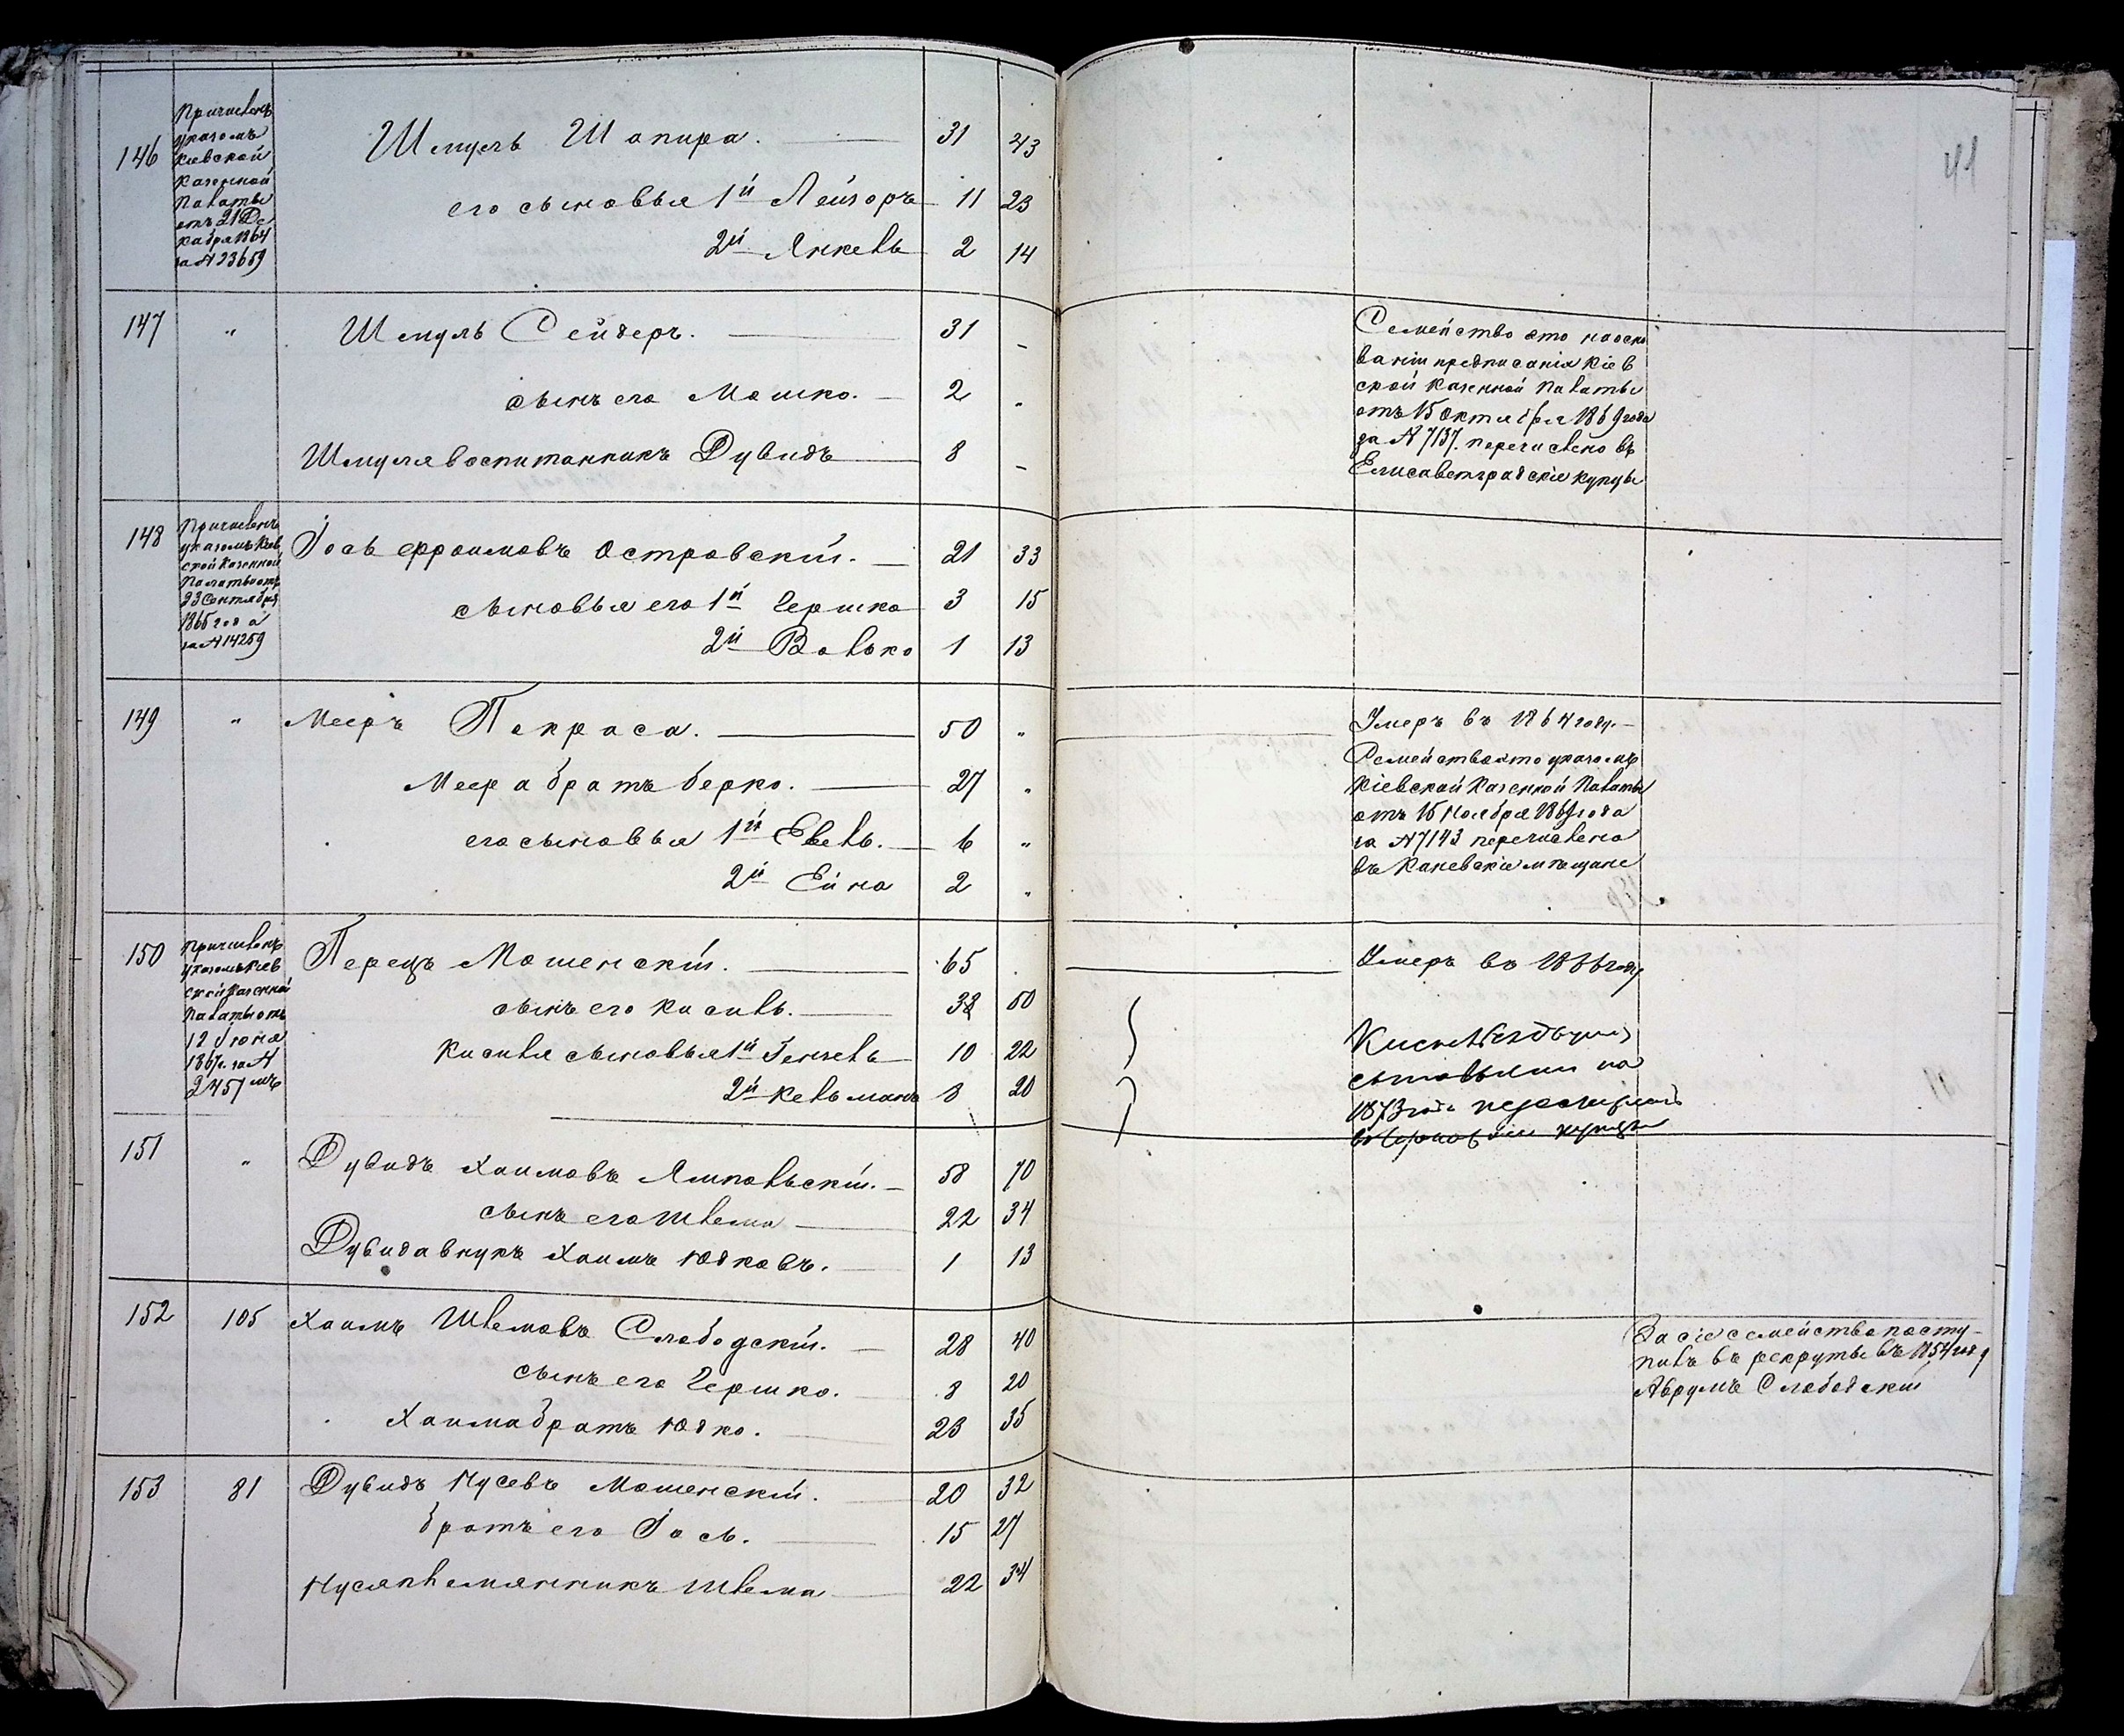 41
146
Причисленъ
указомъ
Кіевской
Казенной
Палаты
отъ 21 Де
кабря 1864
за N 23659
Шмуль Шапира. 31 43
его сыновья 1й Лейзоръ 11 23
2й Янкель 2 14
147 " Шмуль Сейдеръ. 31 -
сынъ его Мошко. 2 -
Шмуля воспитанникъ Дувидъ 8 -
Семейство это на осно
ваніи предписанія Кіев
ской Казенной Палаты
отъ 15 Октября 1869 года
за N 7137. перечислено въ
Елисаветградскіе купцы
148
Причисленъ
указомъ Кіев
ской Казенной
Палаты отъ
23 Сентября
1865 года
за N 14259
Іось Ефроимовъ Островскій. 21 33
сыновья его 1й Гершко 3 15
2й Волько 1 13
149 " Мееръ Покраса. 50 "
Меера братъ Берко. 27 "
его сыновья 1й Евель. 6 "
2й Ейна 2 "
Умеръ въ 1864 году.
Семейство это указомъ
Кіевской Казенной Палаты
отъ 15 Ноября 1869 года
за N 7143 перечислено
въ Каневскіе мѣщане
150
Причисленъ
указомъ Кіев
ской Казенной
Палаты отъ
12 Іюня
1867 г. за N
2457 мъ
Перецъ Мошенскій. 65
сынъ его Кисиль. 38 50
Кисиля сыновья 1й Гемшель 10 22
2й Кельманъ 8 20
Умеръ въ 1866 году
сыновьями на
1873 годъ перечисленъ
купцы
151 " Дувидъ Хаимовъ Ямпольскій. 58 70
сынъ его Шлема 22 34
Дувида внукъ Хаимъ Юдковъ. 1 13
152 105 Хаимъ Шлемовъ Слободскій. 28 40
сынъ его Гершко. 8 20
Хаима братъ Юдко. 23 35
За сіе семейство посту-
пилъ въ рекруты въ 1854 году
Аврумъ Слободскій
153 81 Дувидъ Нусевъ Мошенскій. 20 32
братъ его Іось. 15 27
Нуся племянникъ Шлема 22 34